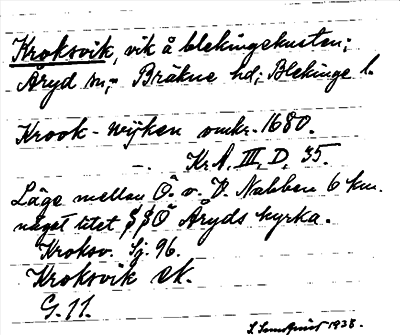 Kroksvik, vik å blekingekusten;
Åryd sn; Bräkne hd; Blekinge l.
Krook-wijken omkr. 1680.
Kr.A. III, D, 35.
Läge mellan Ö. o. V. Nabben 6 km.
något litet SSÖ Åryds kyrka.
Kroksv. Sj. 96.
Kroksvik ek.
G. 11.
S. Lundqvist 1928.